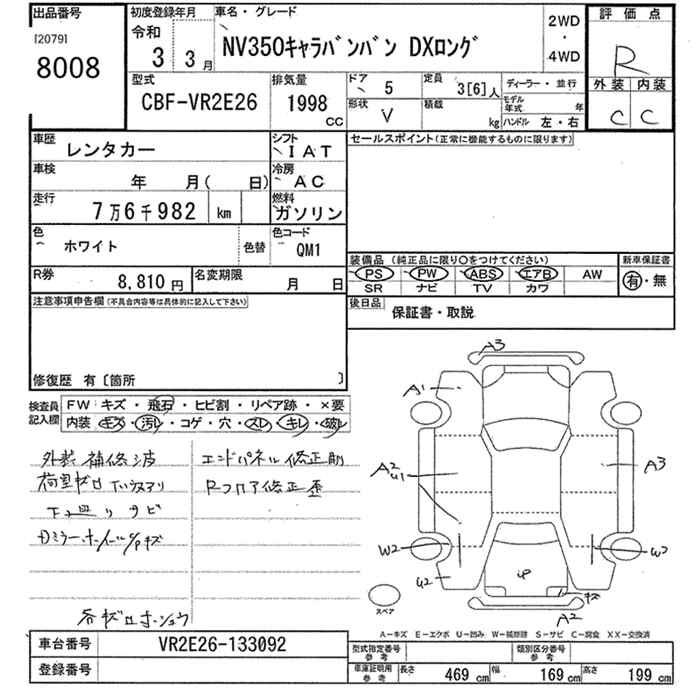 出品番号
[2079]
8008
初度登録年月
令和
3 3月
車名・グレード
NV350キャラバンバン DXロング
2WD
・
4WD
評価点
R
外装 内装
C C
型式
CBF-VR2E26
排気量
1998
CC
ドア 5
形状 V
定員 3[6]人
積載 kg
ディーラー・並行
モデル年式 年
ハンドル 左・右
車歴 レンタカー
シフト IAT
車検 年 月( 日)
冷房 AC
走行 7万6千982 km
燃料 ガソリン
色 ホワイト
色替
色コード QM1
R券 8,810円
名変期限 月 日
セールスポイント(正常に機能するものに限ります)
装備品(純正品に限り○をつけてください)
新車保証書
PS PW ABS エアB AW
SR ナビ TV カワ
有・無
後日品 保証書・取説
注意事項申告欄(不具合内容等は具体的に記入して下さい)
修復歴 有〔箇所 〕
検査員記入欄
FW:キズ・飛石・ヒビ割・リペア跡・×要
内装:キズ・汚レ・コゲ・穴・スレ・キレ・破レ
外装補修波
エンドパネル修正剥
Rフロア修正歪
下廻りサビ
A3
A1
A2
U1
A3
W2
W2
U2
キズ
A2
スペア
A-キズ E-エクボ U-凹み W-補修跡 S-サビ C-腐食 XX-交換済
車台番号 VR2E26-133092
登録番号
型式指定番号 参考
類別区分番号 参考
車庫証明用 参考
長さ 469 cm 幅 169 cm 高さ 199 cm